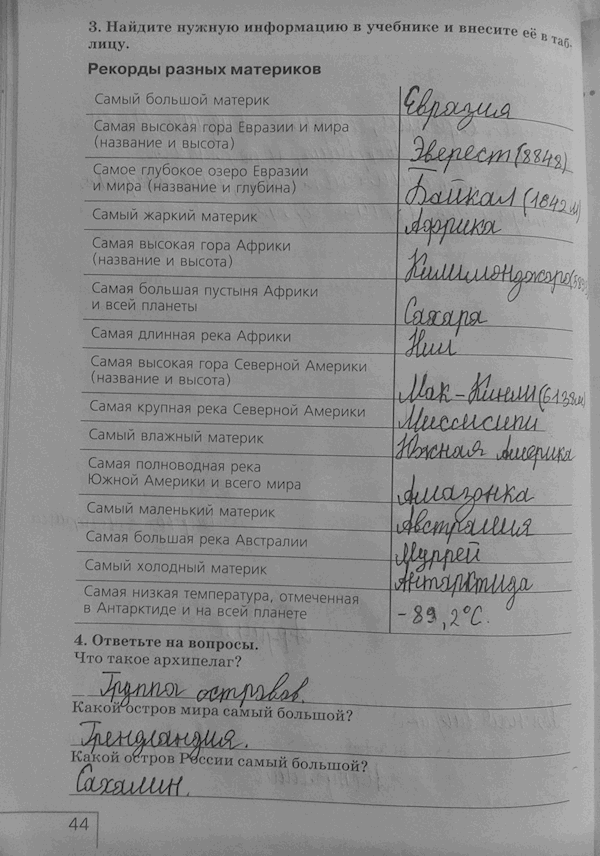 3. Найдите нужную информацию в учебнике и внесите её в таб-
лицу.
Рекорды разных материков
Самый большой материк Евразия
Самая высокая гора Евразии и мира
(название и высота) Эверест (8848)
Самое глубокое озеро Евразии
и мира (название и глубина) Байкал (1642м)
Самый жаркий материк Африка
Самая высокая гора Африки
(название и высота) Килимонджаро (589
Самая большая пустыня Африки
и всей планеты Сахара
Самая длинная река Африки Нил
Самая высокая гора Северной Америки
(название и высота) Мак-Кинли (6138м)
Самая крупная река Северной Америки Миссисипи
Самый влажный материк Южная Америка
Самая полноводная река
Южной Америки и всего мира Амазонка
Самый маленький материк Австралия
Самая большая река Австралии Муррей
Самый холодный материк Антарктида
Самая низкая температура, отмеченная
в Антарктиде и на всей планете -89,2°С.
4. Ответьте на вопросы.
Что такое архипелаг?
Группа островов.
Какой остров мира самый большой?
Гренландия.
Какой остров России самый большой?
Сахалин.
44